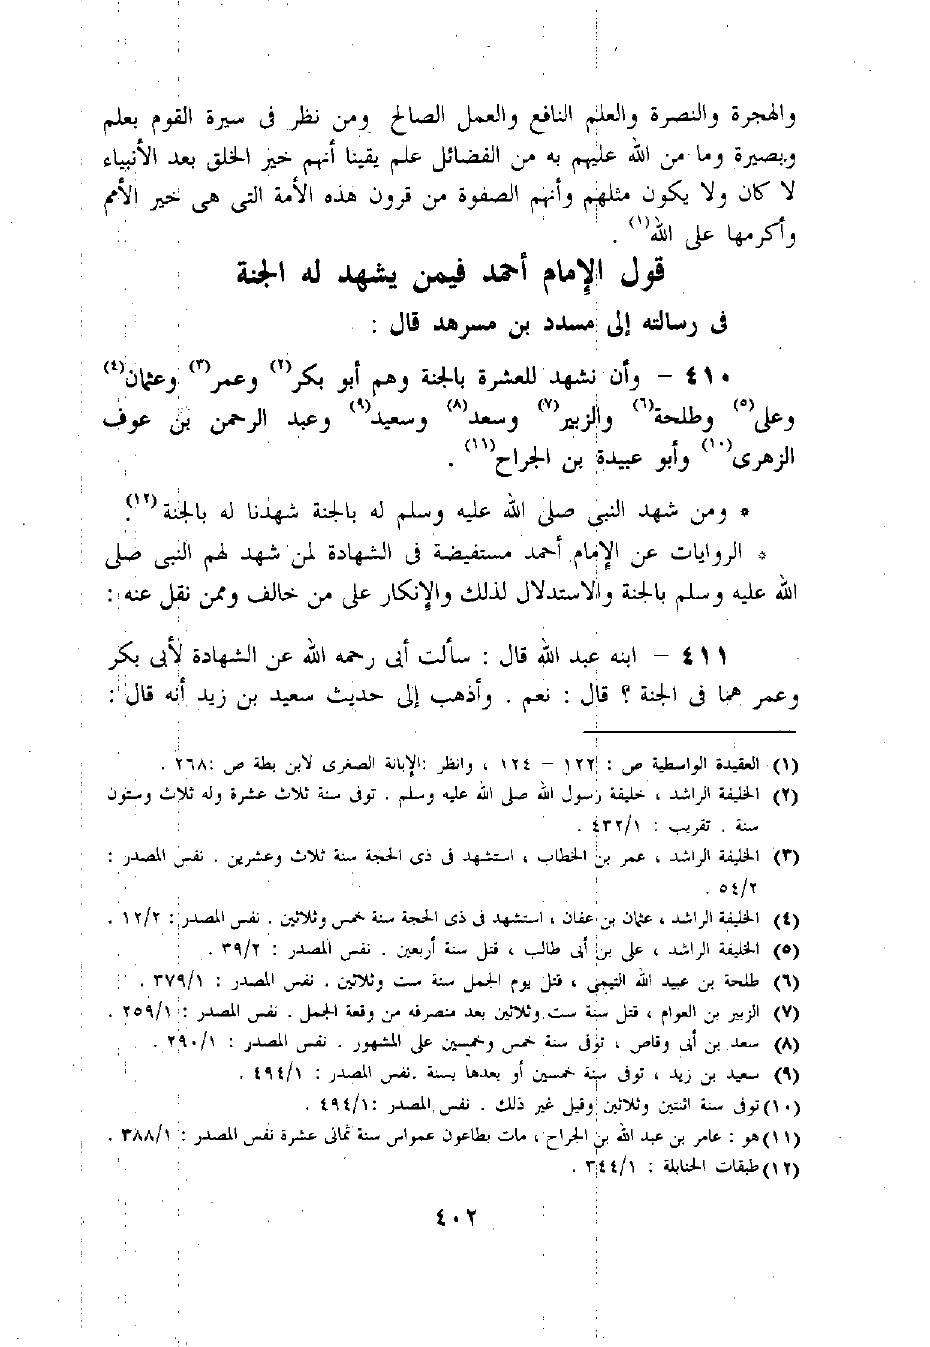 والهجرة والنصرة والعلم النافع والعمل الصالح ومن نظر فى سيرة القوم بعلم
وبصيرة وما من الله عليهم به من الفضائل علم يقينا أنهم خير الخلق بعد الأنبياء
لا كان ولا يكون مثلهم وأنهم الصفوة من قرون هذه الأمة التى هى خير الأمم
وأكرمها على الله(١) .
قول الإمام أحمد فيمن يشهد له الجنة
فى رسالته إلى مسدد بن مسرهد قال :
٤١٠ – وأن نشهد للعشرة بالجنة وهم أبو بكر(٢) وعمر(٣) وعثمان(٤)
وعلى(٥) وطلحة(٦) والزبير(٧) وسعد(٨) وسعيد(٩) وعبد الرحمن بن عوف
الزهرى(١٠) وأبو عبيدة بن الجراح(١١) .
* ومن شهد النبى صلى الله عليه وسلم له بالجنة شهدنا له بالجنة(١٢).
* الروايات عن الإمام أحمد مستفيضة فى الشهادة لمن شهد لهم النبى صلى
الله عليه وسلم بالجنة والاستدلال لذلك والإنكار على من خالف وممن نقل عنه :
٤١١ – ابنه عبد الله قال : سألت أبى رحمه الله عن الشهادة لأبى بكر
وعمر هما فى الجنة ؟ قال : نعم . وأذهب إلى حديث سعيد بن زيد أنه قال :
(١) العقيدة الواسطية ص : ١٢٢ – ١٢٤ ، وانظر :الإبانة الصغرى لابن بطة ص :٢٦٨ .
(٢) الخليفة الراشد ، خليفة رسول الله صلى الله عليه وسلم . توفى سنة ثلاث عشرة وله ثلاث وستون
سنة . تقريب : ٤٣٢/١ .
(٣) الخليفة الراشد ، عمر بن الخطاب ، استشهد فى ذى الحجة سنة ثلاث وعشرين . نفس المصدر :
٥٤/٢ .
(٤) الخليفة الراشد ، عثمان بن عفان ، استشهد فى ذى الحجة سنة خمس وثلاثين . نفس المصدر : ١٢/٢ .
(٥) الخليفة الراشد ، على بن أبى طالب ، قتل سنة أربعين . نفس المصدر : ٣٩/٢ .
(٦) طلحة بن عبيد الله التيمى ، قتل يوم الجمل سنة ست وثلاثين . نفس المصدر : ٣٧٩/١ .
(٧) الزبير بن العوام ، قتل سنة ست وثلاثين بعد منصرفه من وقعة الجمل . نفس المصدر : ٢٥٩/١ .
(٨) سعد بن أبى وقاص ، توفى سنة خمس وخمسين على المشهور . نفس المصدر : ٢٩٠/١ .
(٩) سعيد بن زيد ، توفى سنة خمسين أو بعدها بسنة .نفس المصدر : ٤٩٤/١ .
(١٠)توفى سنة اثنتين وثلاثين وقيل غير ذلك . نفس المصدر :٤٩٤/١ .
(١١)هو : عامر بن عبد الله بن الجراح ، مات بطاعون عمواس سنة ثمانى عشرة نفس المصدر : ٣٨٨/١ .
(١٢)طبقات الحنابلة : ٣٤٤/١ .
٤٠٢